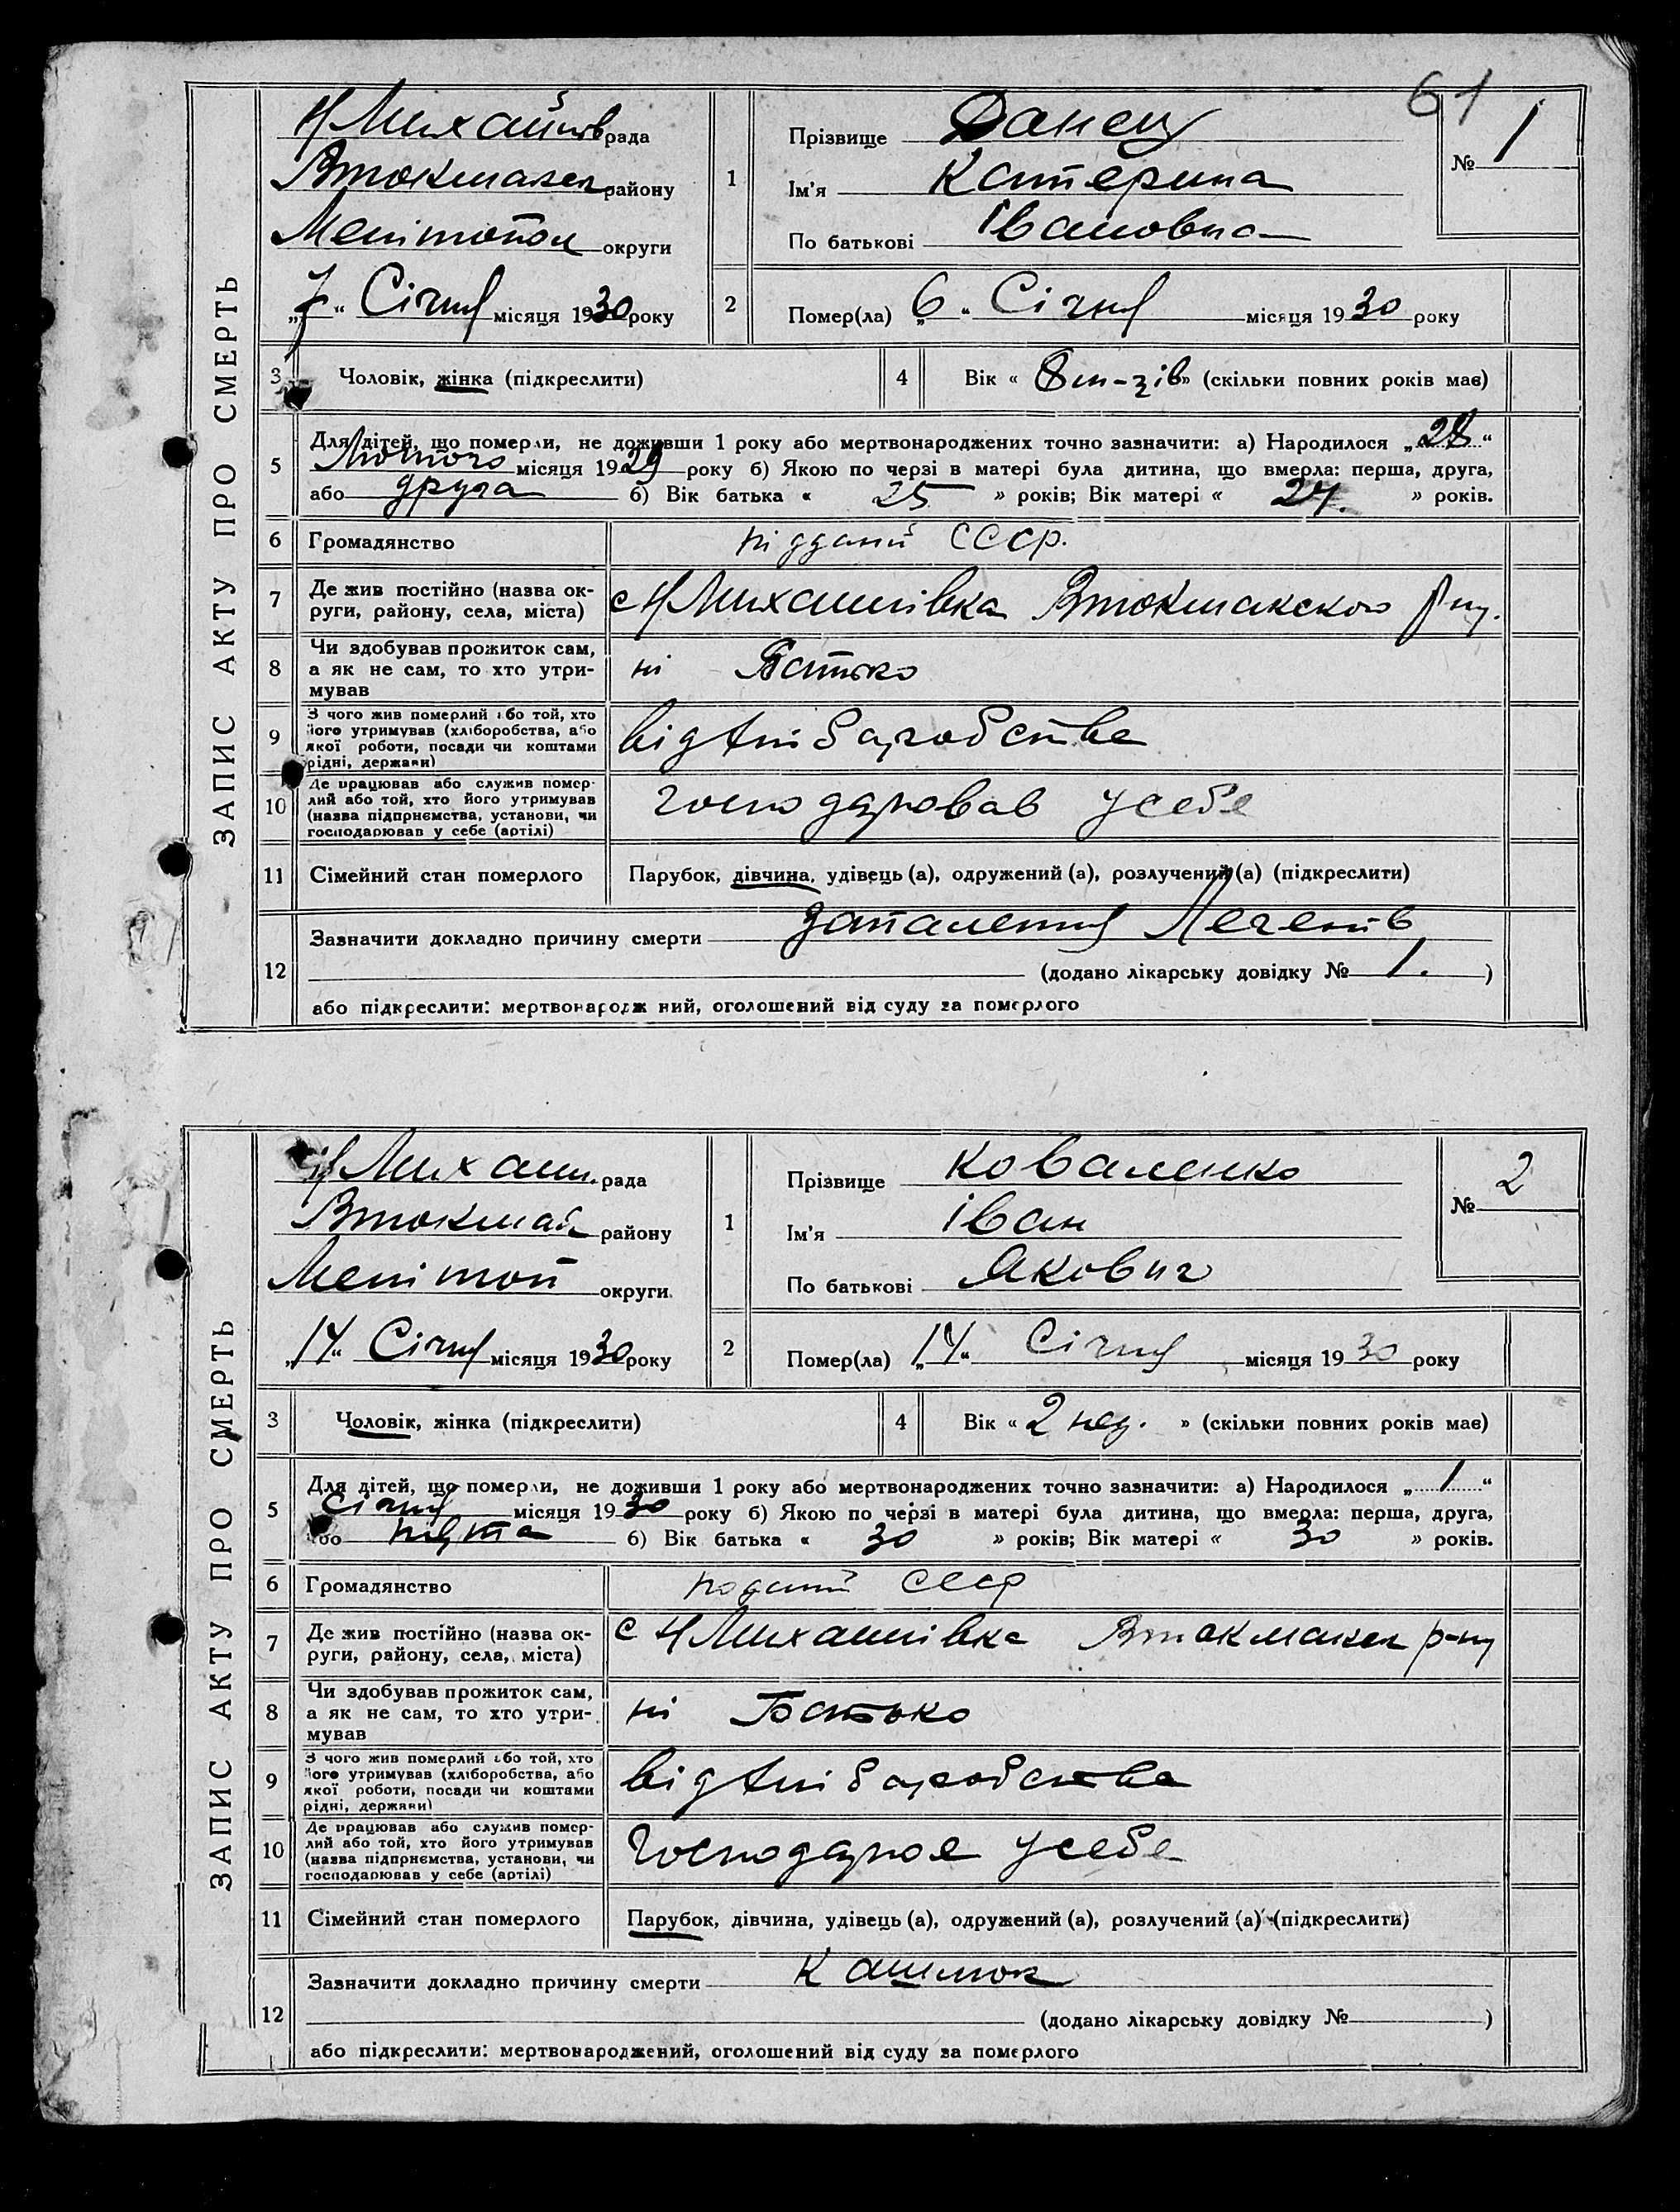 61
ЗАПИС АКТУ ПРО СМЕРТЬ
Н Михайлов рада
Втокмакск району
Мелітопол округи
„7“ Січня місяця 1930 року
1
Прізвище Данец
Ім'я Катерина
По батькові Івановна
№ 1
2
Помер(ла) „6“ Січня місяця 1930 року
3 Чоловік, жінка (підкреслити)
4 Вік « 8 м-зів» (скільки повних років має)
5 Для дітей, що померли, не доживши 1 року або мертвонароджених точно зазначити: а) Народилося „28“
Лютого місяця 1929 року б) Якою по черзі в матері була дитина, що вмерла: перша, друга,
або друга б) Вік батька « 25 » років; Вік матері « 24. » років.
6 Громадянство підданий СССР.
7 Де жив постійно (назва ок-
руги, району, села, міста) с Н Михайлівка Втокмакского р ну.
8 Чи здобував прожиток сам,
а як не сам, то хто утри-
мував
ні Батько
9 З чого жив померлий або той, хто
його утримував (хліборобства, або
якої роботи, посади чи коштами
рідні, держави)
від хлібаробства
10 Де працював або служив помер-
лий або той, хто його утримував
(назва підприємства, установи, чи
господарював у себе (артілі)
господаровав усебе
11 Сімейний стан померлого Парубок, дівчина, удівець (а), одружений (а), розлучений (а) (підкреслити)
12 Зазначити докладно причину смерти Запалення Легенів
(додано лікарську довідку № 1. )
або підкреслити: мертвонародж ний, оголошений від суду за померлого
ЗАПИС АКТУ ПРО СМЕРТЬ
Н Михайл. рада
Втокмак району
Мелітоп округи
„14“ Січня місяця 1930 року
1
Прізвище Коваленко
Ім'я Іван
По батькові Якович
№ 2
2
Помер(ла) „14“ Січня місяця 1930 року
3 Чоловік, жінка (підкреслити)
4 Вік « 2 нед. » (скільки повних років має)
5 Для дітей, що померли, не доживши 1 року або мертвонароджених точно зазначити: а) Народилося „1“
Січня місяця 1930 року б) Якою по черзі в матері була дитина, що вмерла: перша, друга,
або пята б) Вік батька « 30 » років; Вік матері « 30 » років.
6 Громадянство поданий СССР
7 Де жив постійно (назва ок-
руги, району, села, міста) с Н Михайлівка Втокмакск р-ну
8 Чи здобував прожиток сам,
а як не сам, то хто утри-
мував
ні Батько
9 З чого жив померлий або той, хто
його утримував (хліборобства, або
якої роботи, посади чи коштами
рідні, держави)
від хлібаробства
10 Де працював або служив помер-
лий або той, хто його утримував
(назва підприємства, установи, чи
господарював у себе (артілі)
Господарює усебе
11 Сімейний стан померлого Парубок, дівчина, удівець (а), одружений (а), розлучений (а) (підкреслити)
12 Зазначити докладно причину смерти Кашлюк
(додано лікарську довідку № )
або підкреслити: мертвонароджений, оголошений від суду за померлого